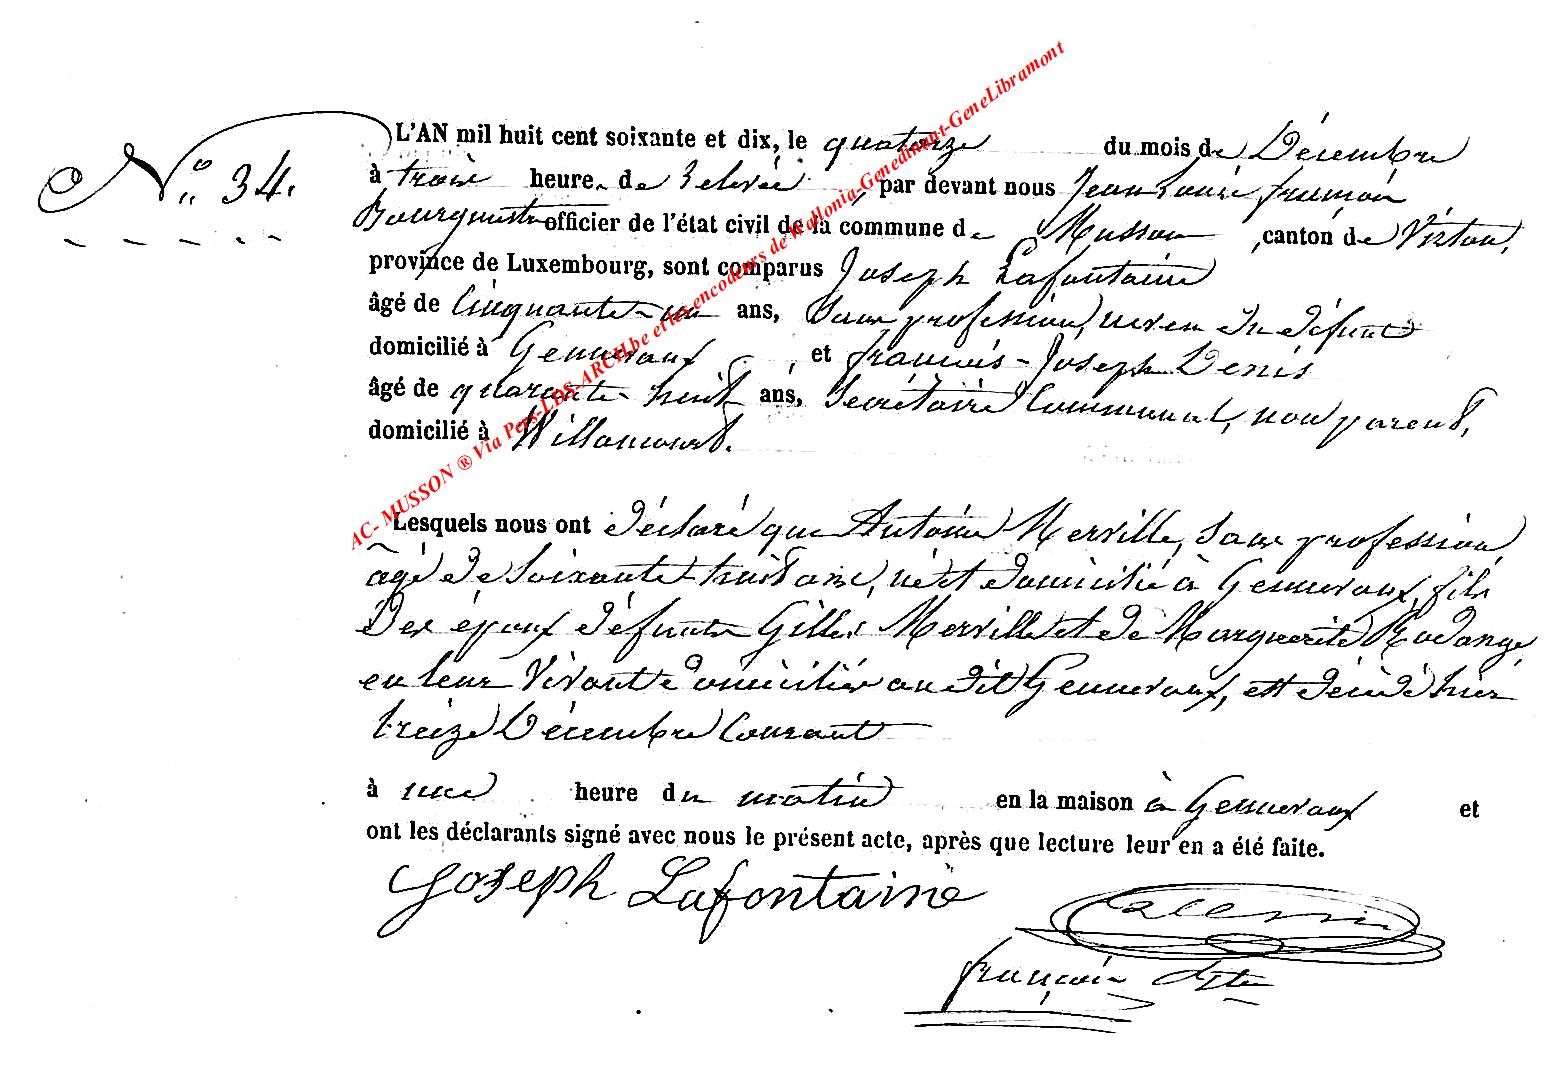 N° 34.
L'AN mil huit cent soixante et dix, le quatorze du mois de Décembre
à trois heure de relevée, par devant nous Jean Louis françois
Bourgmestre officier de l'état civil de la commune de Musson, canton de Virton,
province de Luxembourg, sont comparus Joseph Lafontaine
âgé de Cinquante-un ans, sans profession, neveu du défunt
domicilié à Gennevaux, et françois-Joseph Denis
âgé de quarante huit ans, Secrétaire Communal, non parent,
domicilié à Willancourt.
Lesquels nous ont déclaré que Antoine Merville, sans profession
âgé de soixante-huit ans, né et domicilié à Gennevaux, fils
des époux défunts Gilles Merville et de Marguerite Rodange,
en leur vivant domiciliés au dit Gennevaux, est décédé hier
treize Décembre Courant
à une heure du matin en la maison à Gennevaux et
ont les déclarants signé avec nous le présent acte, après que lecture leur en a été faite.
Joseph Lafontaine
françois
AC- MUSSON ® Via Pers-LDS-ARCH.be et les encodeurs de Wallonia-Genedinant-GeneLibramont